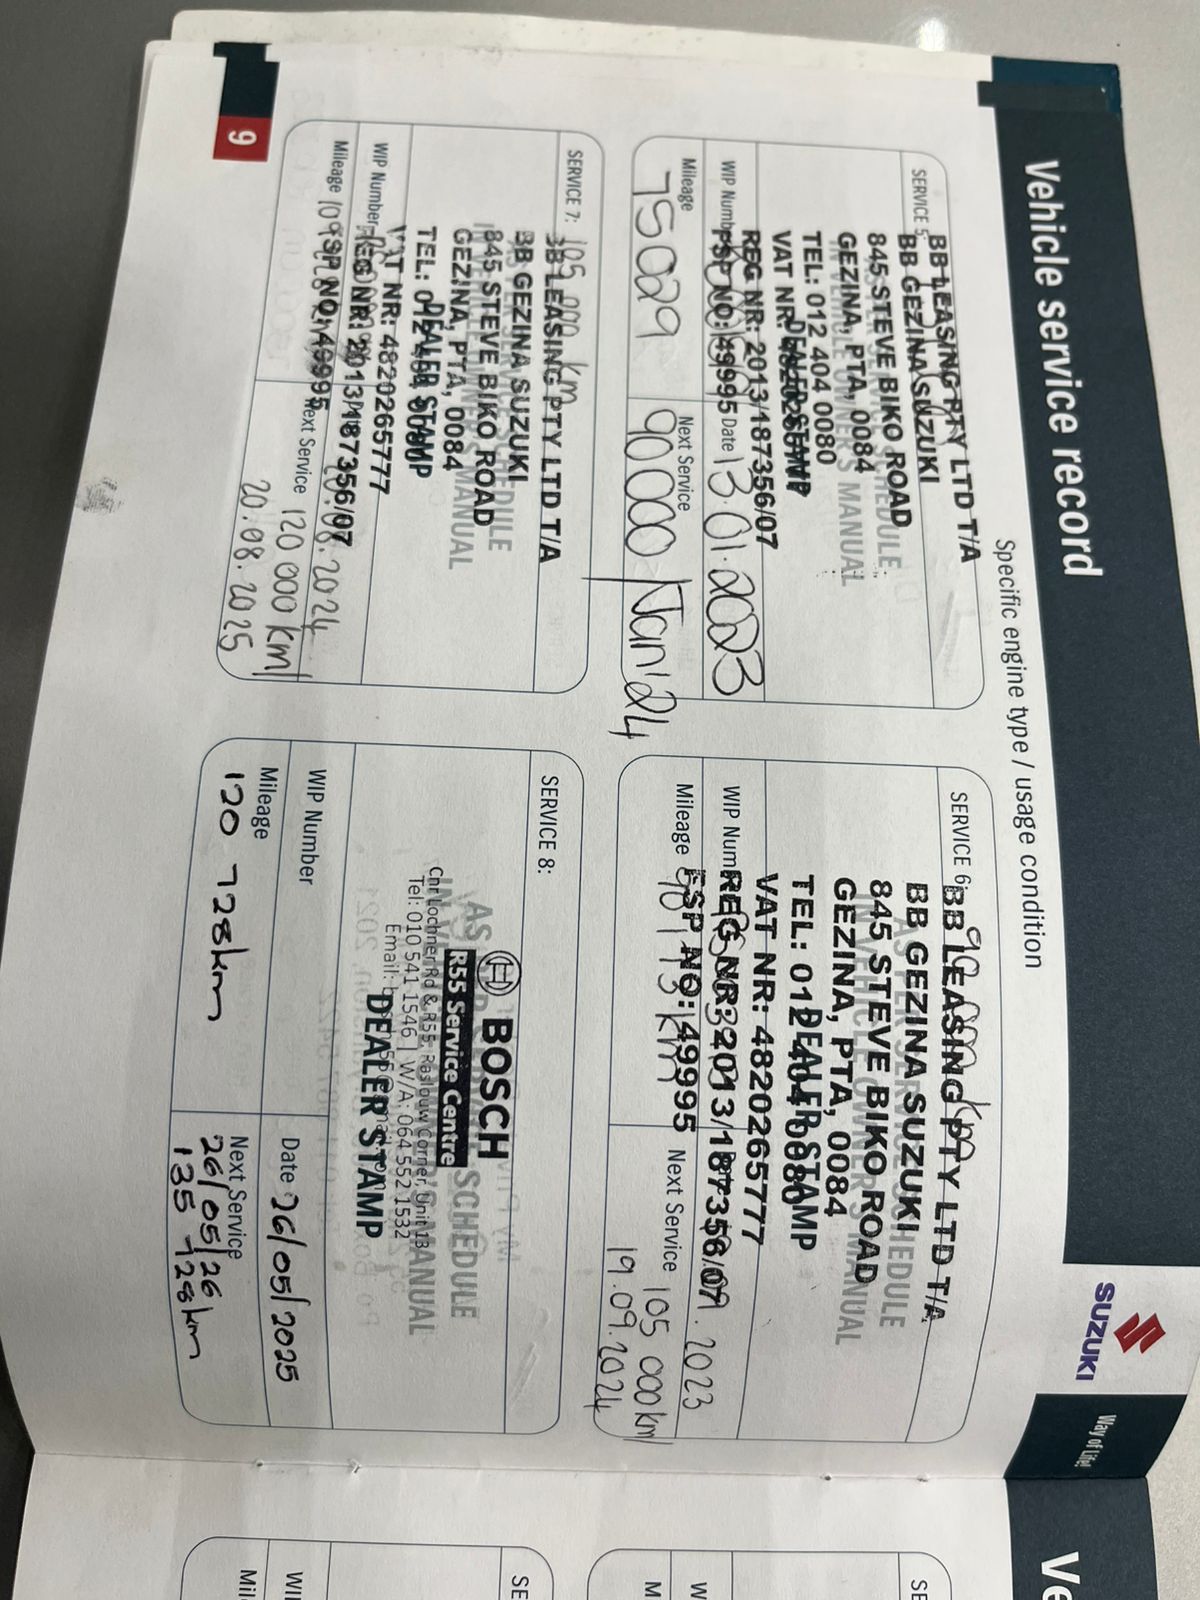 Vehicle service record
SUZUKI
Way of Life!
Specific engine type / usage condition
SERVICE 5:
BB LEASING PTY LTD T/A
BB GEZINA SUZUKI
845 STEVE BIKO ROAD
GEZINA, PTA, 0084
TEL: 012 404 0080
VAT NR: 4820265777
DEALER STAMP
REG NR: 2013/187356/07
PSP NO: 49995
WIP Number
Date 13.01.2023
Mileage 75029
Next Service 90000 Jan'24
SERVICE 6: 90 000 km
BB LEASING PTY LTD T/A
BB GEZINA SUZUKI
845 STEVE BIKO ROAD
GEZINA, PTA, 0084
TEL: 012 404 0080
DEALER STAMP
VAT NR: 4820265777
REG NR: 2013/187356/07
PSP NO: 49995
2023
Mileage
Next Service 105 000 km/
19.09.2024
SERVICE 7: 105 000 km
BB LEASING PTY LTD T/A
BB GEZINA SUZUKI
845 STEVE BIKO ROAD
GEZINA, PTA, 0084
TEL: 012 404 0080
DEALER STAMP
VAT NR: 4820265777
WIP Number
REG NR: 2013/187356/07
PSP NO: 49995
08.2024
Mileage
Next Service 120 000 km/
20.08.2025
SERVICE 8:
AS PER SERVICE SCHEDULE
IN VEHICLE OWNER'S MANUAL
BOSCH
R55 Service Centre
Chr Lochner Rd & R55, Raslouw Corner, Unit 13
Tel: 010 541 1546 | W/A: 064 552 1532
Email:
DEALER STAMP
WIP Number
Date 26/05/2025
Mileage
120 728km
Next Service
26/05/26
135 728km
9